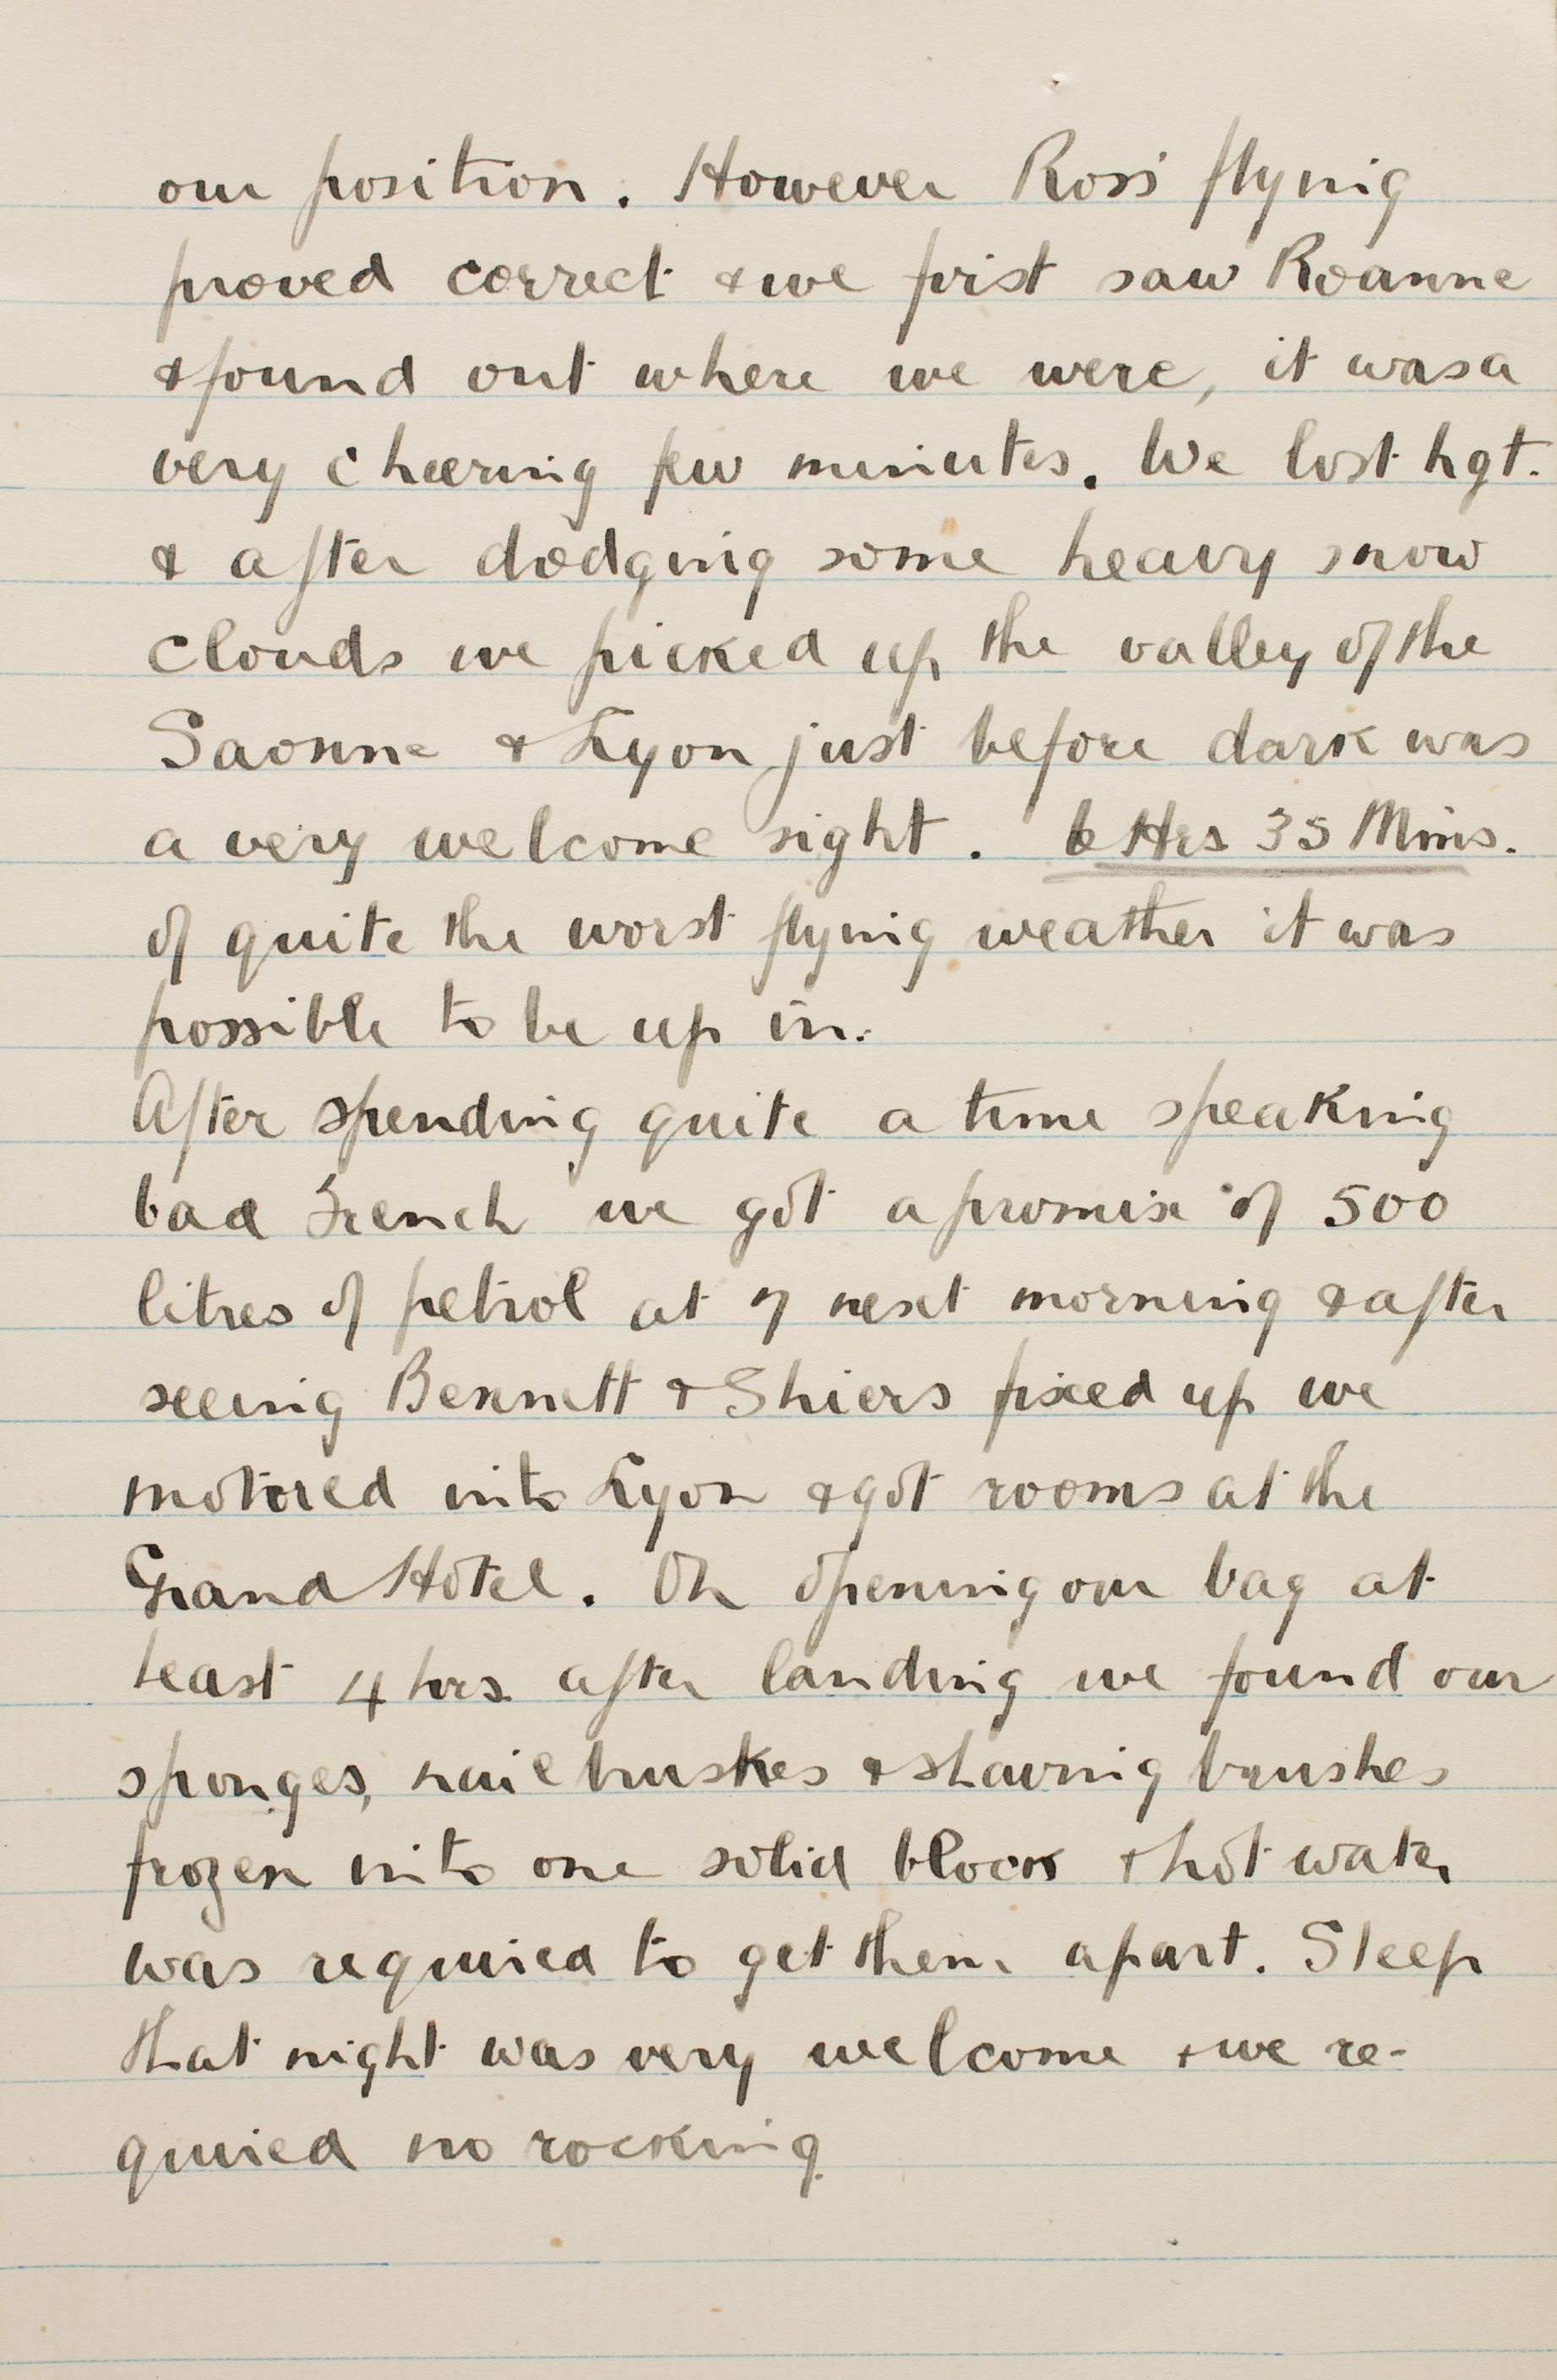 our position. However Ross' flying
proved correct & we first saw Roanne
& found out where we were, it was a
very cheering few minutes. We lost hgt.
& after dodging some heavy snow
clouds we picked up the valley of the
Saonne & Lyon just before dark was
a very welcome sight. 6 Hrs 35 Mins.
of quite the worst flying weather it was
possible to be up in.
After spending quite a time speaking
bad French we got a promise of 500
litres of petrol at 7 next morning & after
seeing Bennett & Shiers fixed up we
motored into Lyon & got rooms at the
Grand Hotel. On opening our bag at
least 4 hrs after landing we found our
sponges, nail brushes & shaving brushes
frozen into one solid block & hot water
was required to get them apart. Sleep
that night was very welcome & we re-
quired no rocking